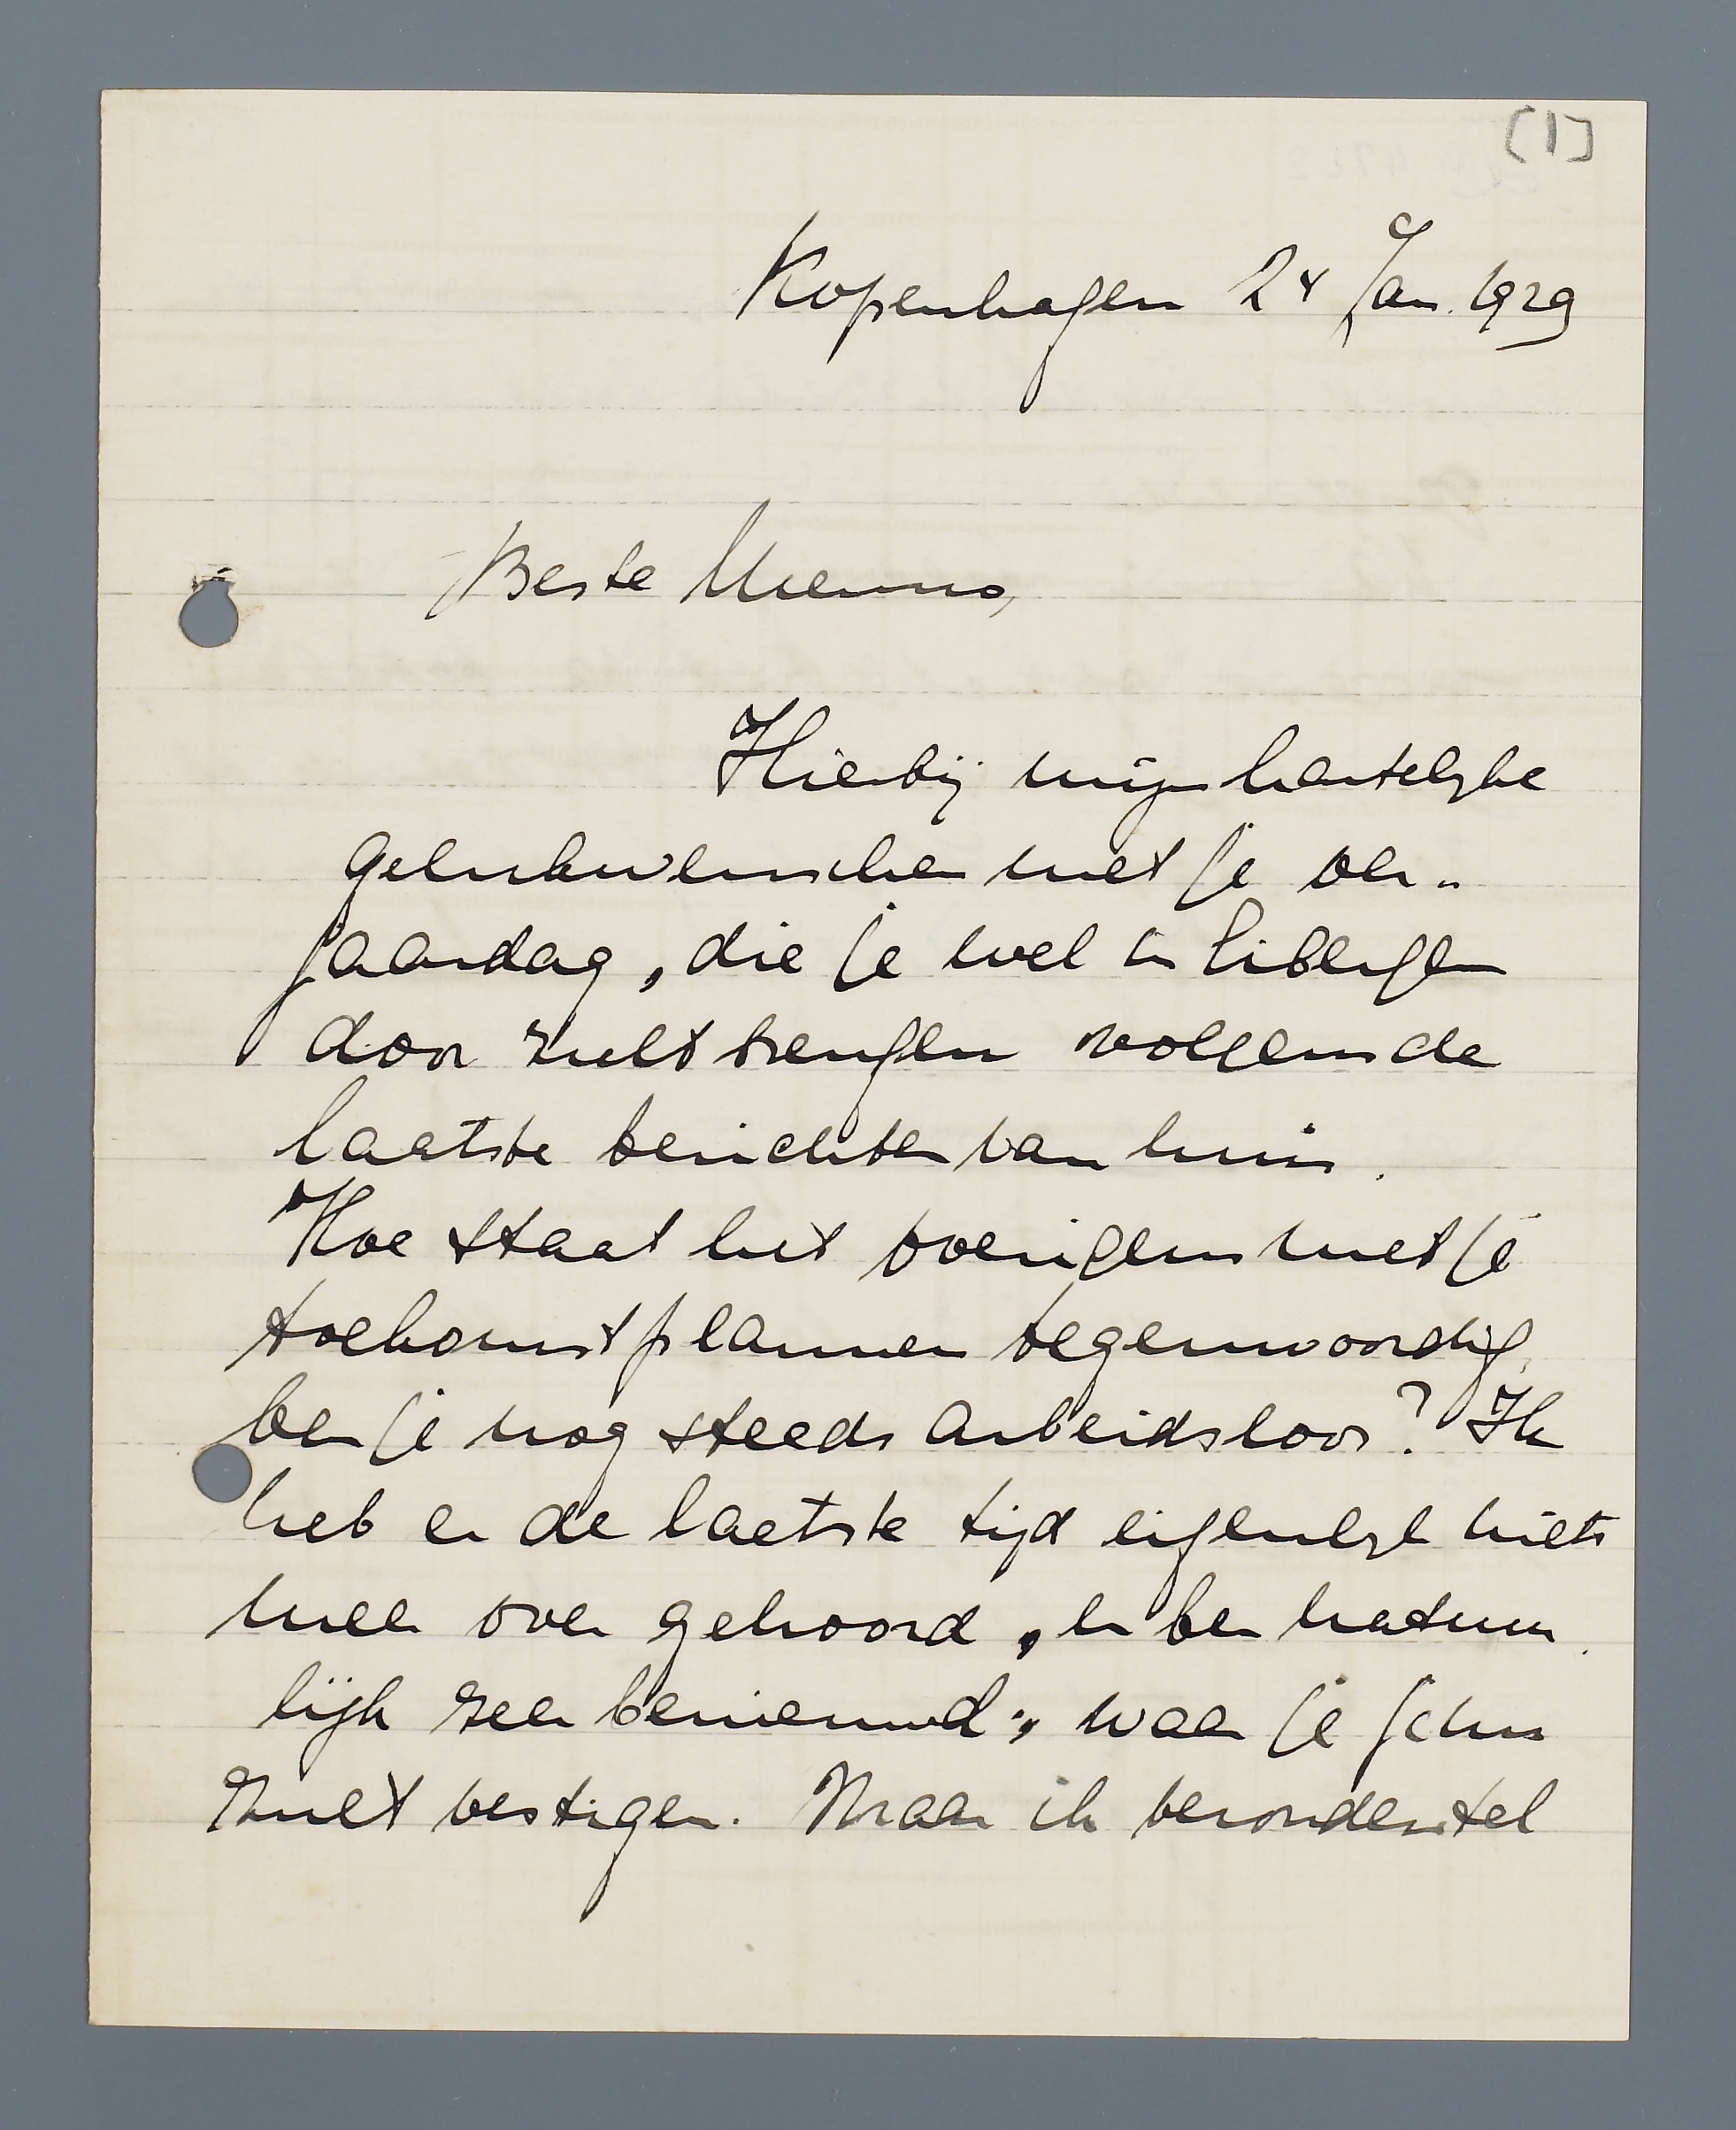 [1]
Kopenhagen 24 Jan. 1929
Beste Menno,
Hierbij mijn hartelijke
gelukwenschen met je ver-
jaardag, die je wel in Eibergen
door zult brengen volgens de
laatste berichten van huis.
Hoe staat het overigens met je
toekomstplannen tegenwoordig,
ben je nog steeds arbeidsloos? Ik
heb er de laatste tijd eigenlijk niets
meer over gehoord, en ben natuur-
lijk zeer benieuwd, waar je je
zult vestigen. Maar ik veronderstel